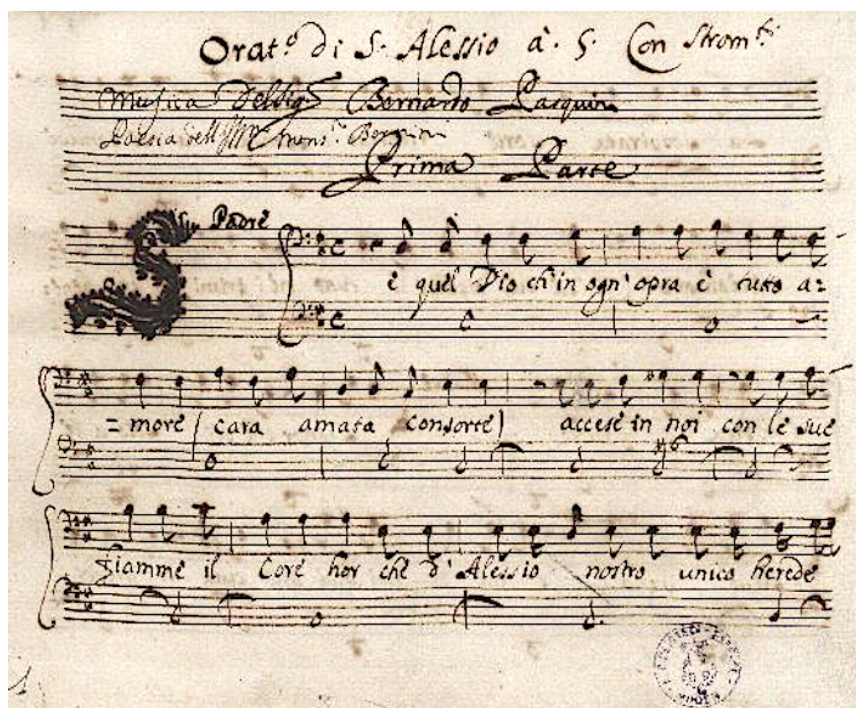 Orat.º di S. Alessio à. 5. Con Strom.ti
Musica Del Sig.r Bernardo Pasquini
Poesia dell Mons.r Bernini
Prima Parte
Padre
S e quel Dio ch'in ogn'opra è tutto a=
=more (cara amata consorte) accese in noi con le sue
fiamme il Core hor che d'Alessio nostro unico herede